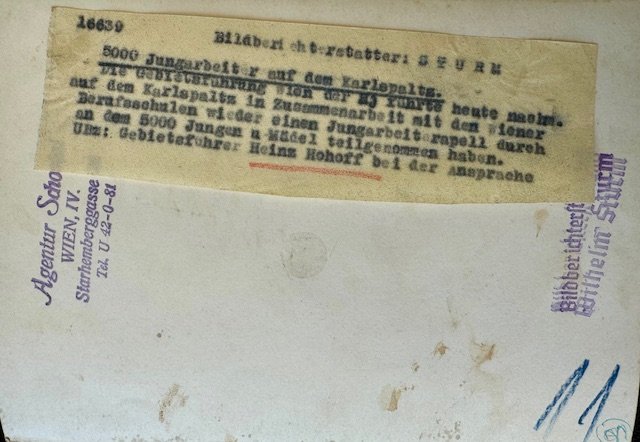 16639
Bildberichterstatter: STURM
5000 Jungarbeiter auf dem Karlspaltz.
Die Gebietsführung Wien der HJ führte heute nachm.
auf dem Karlspaltz in Zusammenarbeit mit den Wiener
Berufsschulen wieder einen Jungarbeiterapell durch
an dem 5000 Jungen u Mädel teilgenommen haben.
UBz: Gebietsführer Heinz Hohoff bei der Ansprache
Agentur Scho
WIEN, IV.
Starhemberggasse
Tel. U 42-0-81
Bildberichterst
Wilhelm Sturm
11